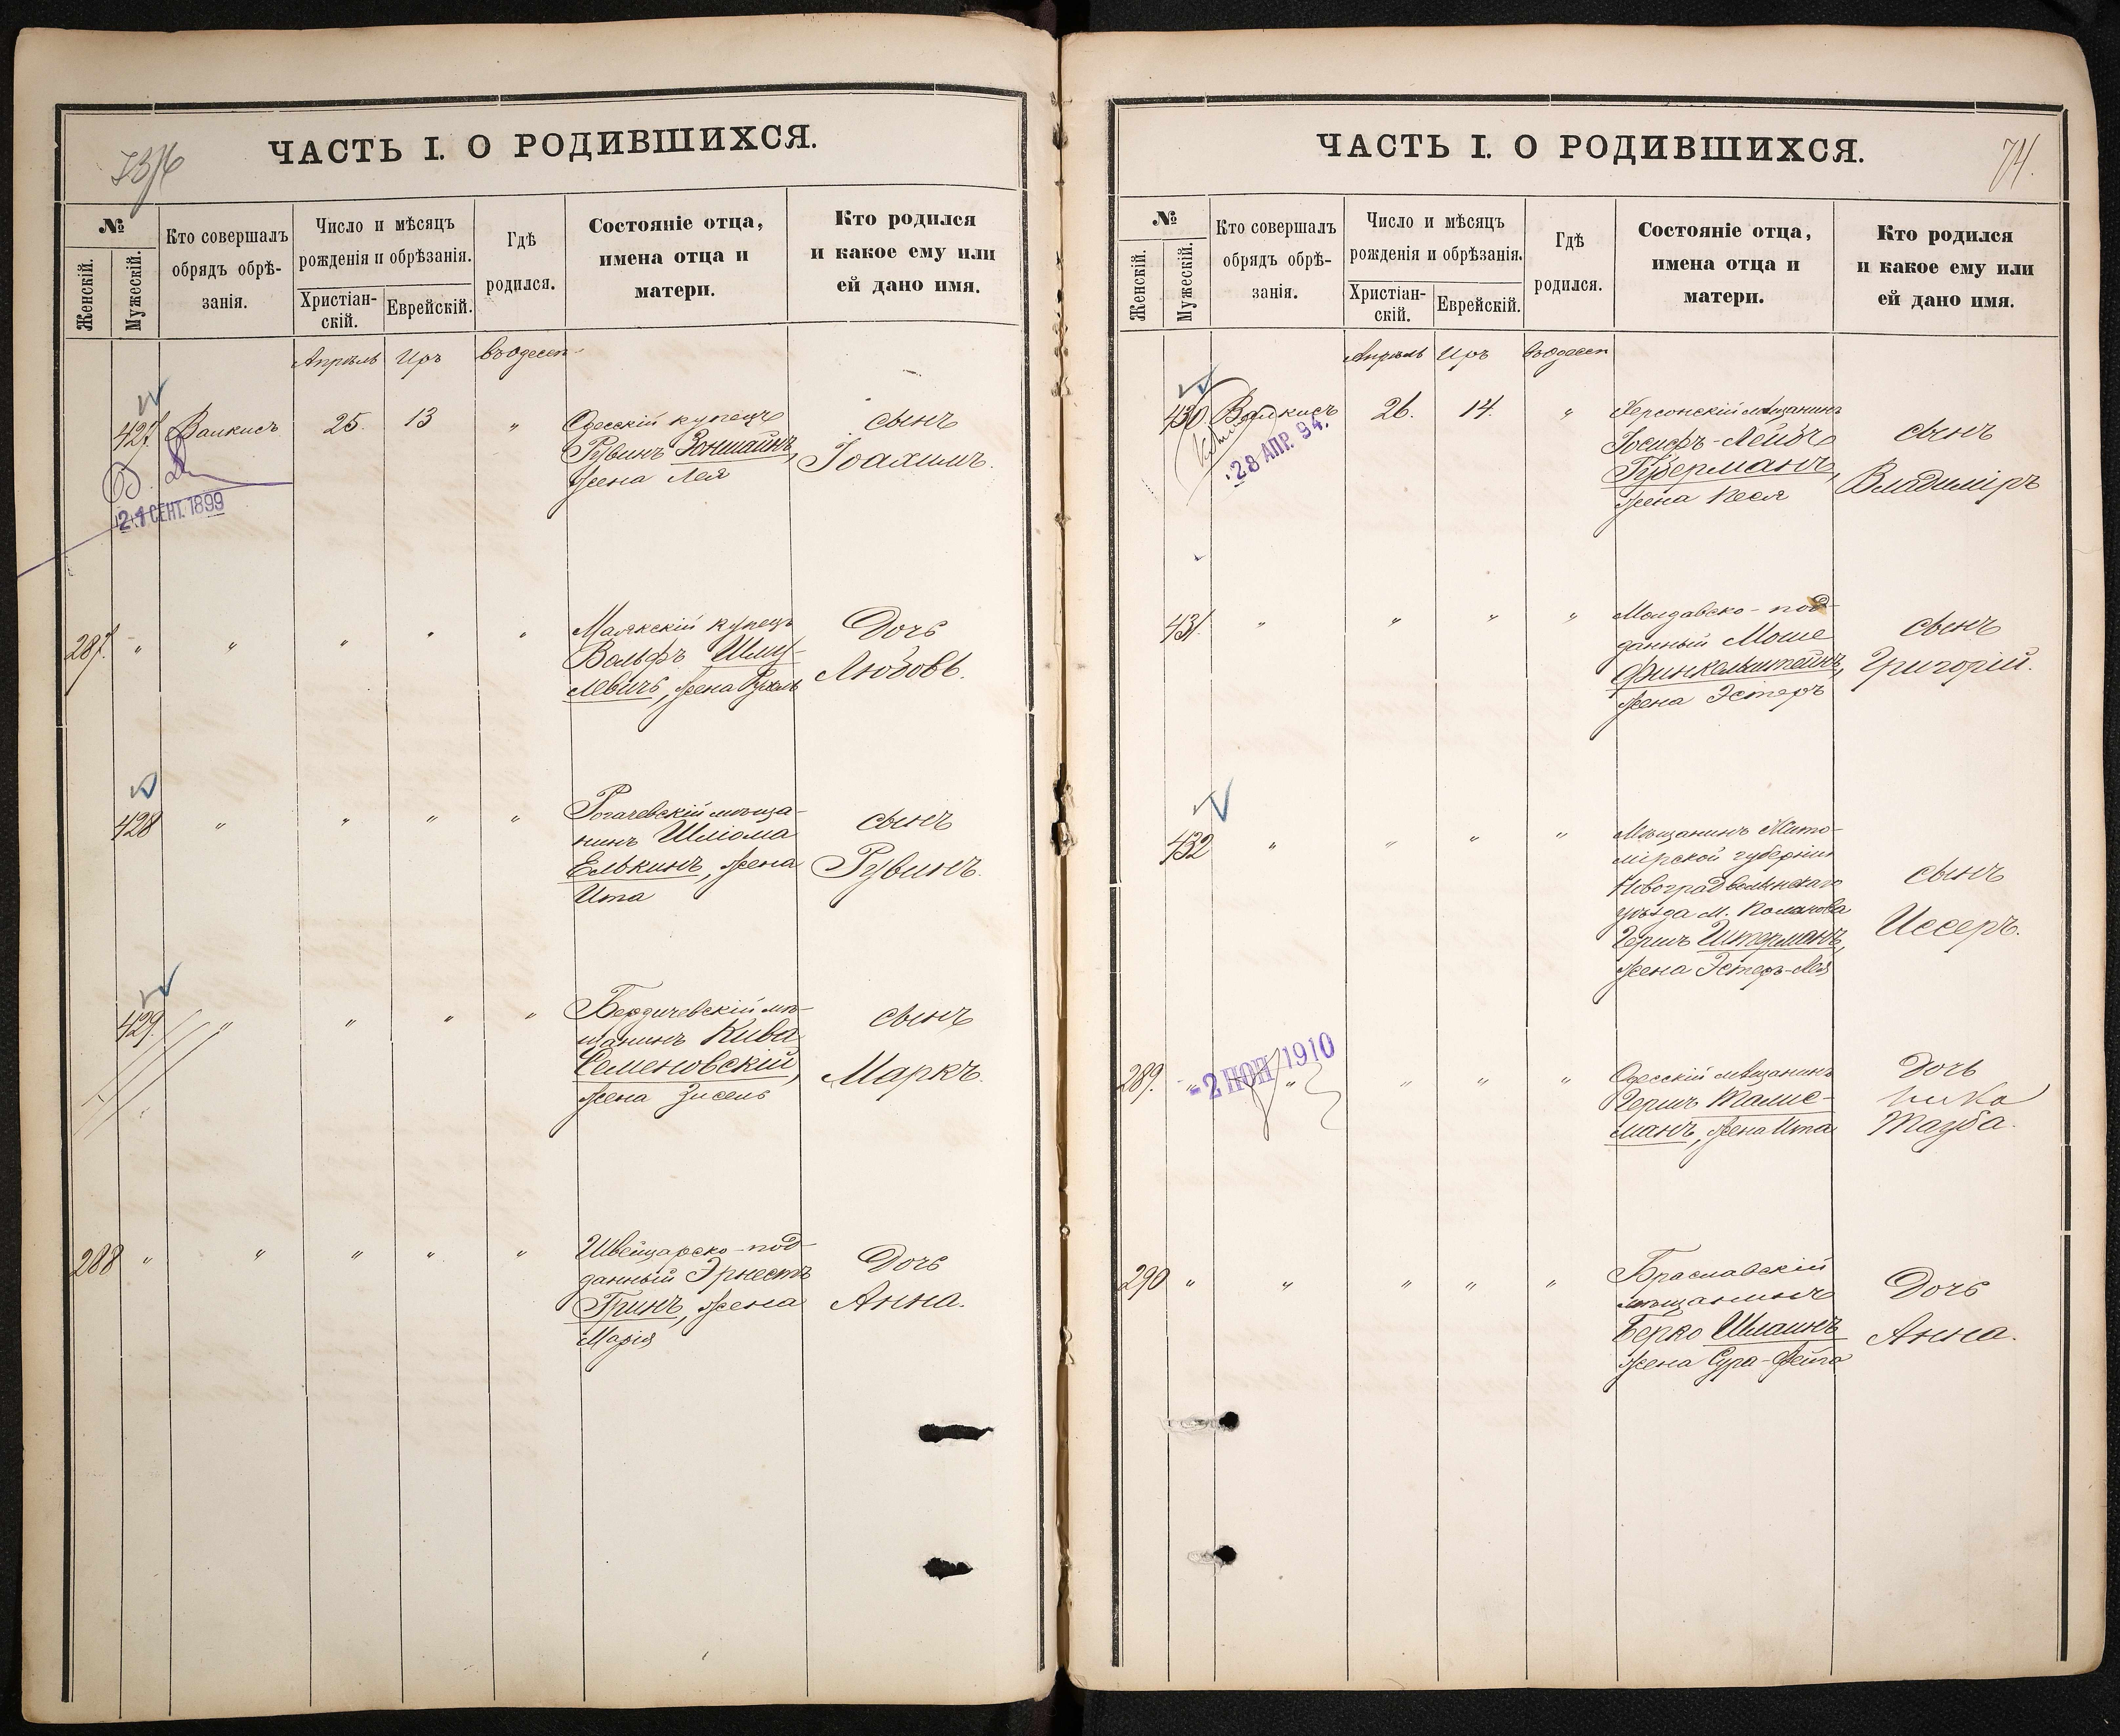 ЧАСТЬ I. О РОДИВШИХСЯ.
№
Женскій.
Мужескій.
Кто совершалъ
обрядъ обрѣ-
занія.
Число и мѣсяцъ
рожденія и обрѣзанія.
Христіан-
скій.
Еврейскій.
Гдѣ
родился.
Состояніе отца,
имена отца и
матери.
Кто родился
и какое ему или
ей дано имя.
Апрѣль Иръ въ Одессѣ
427. Валкисъ 25. 13 "
Одесскій купецъ
Рувинъ Зонштайнъ,
жена Лея
сынъ
Іоахимъ.
21 СЕНТ. 1899
287. " " " " "
Маякскій купецъ
Вольфъ Шму-
левичъ, жена
Дочь
Любовь.
428 " " " "
Рогачевскій мѣща-
нинъ Шліома
Елькинъ, жена
Ита
сынъ
Рувинъ.
429. " " " "
Бердичевскій мѣ-
щанинъ Кива
Семеновскій,
жена Зисель
сынъ
Маркъ.
288 " " " " "
Швейцарско-под-
данный Эрнестъ
Гринъ, жена
Марія
Дочь
Анна.
ЧАСТЬ I. О РОДИВШИХСЯ.
74.
№
Женскій.
Мужескій.
Кто совершалъ
обрядъ обрѣ-
занія.
Число и мѣсяцъ
рожденія и обрѣзанія.
Христіан-
скій.
Еврейскій.
Гдѣ
родился.
Состояніе отца,
имена отца и
матери.
Кто родился
и какое ему или
ей дано имя.
Апрѣль Иръ въ Одессѣ
430. Валкисъ 26. 14. "
28 АПР. 94.
Херсонскій мѣщанинъ
Іосифъ-Лейбъ
Губерманъ,
жена Песя
сынъ
Владиміръ
431. " " " "
Молдавско-под-
данный Моше
Финкельштейнъ,
жена Эстеръ
сынъ
Григорій.
432 " " " "
Мѣщанинъ Жито-
мірской губерніи
Новоградволынскаго
уѣзда м.
Гершъ Штерманъ,
жена Эстеръ-Лея
сынъ
Иссеръ.
289. " " " " "
- 2 НОЯ 1910
Одесскій мѣщанинъ
Гершъ Талис-
манъ, жена Ита
Дочь
Тауба.
290 " " " " "
Браславскій
мѣщанинъ
Берко Шпаинъ
жена Сура-Фейга
Дочь
Анна.